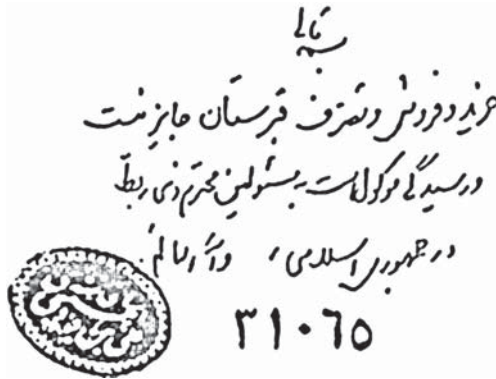 بسمه تعالی
خرید و فروش و تصرف قبرستان جایز نیست
و رسیدگی موکول است به مسئولین محترم ذی ربط
در جمهوری اسلامی، والله العالم.
۳۱۰۶۵